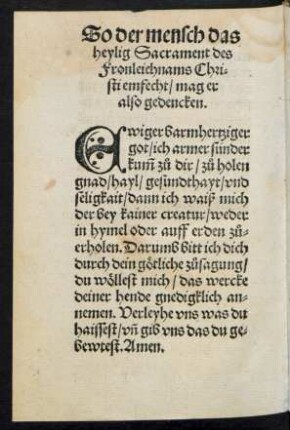 So der mensch das
heylig Sacrament des
Fronleichnams Chri-
sti emfecht/ mag er
also gedencken.
Ewiger barmhertziger
got/ ich armer sünder
kum̃ zů dir/ zů holen
gnad/ hayl/ gesundthayt/ vnd
seligkait/ dann ich waiß mich
der bey kainer creatur/ weder
in hymel oder auff erden zů-
erholen. Darumb bitt ich dich
durch dein götliche zůsagung/
du wöllest mich/ das wercke
deiner hende gnedigklich an-
nemen. Verleyhe vns was du
haissest/ vñ gib vns das du ge-
bewtest. Amen.